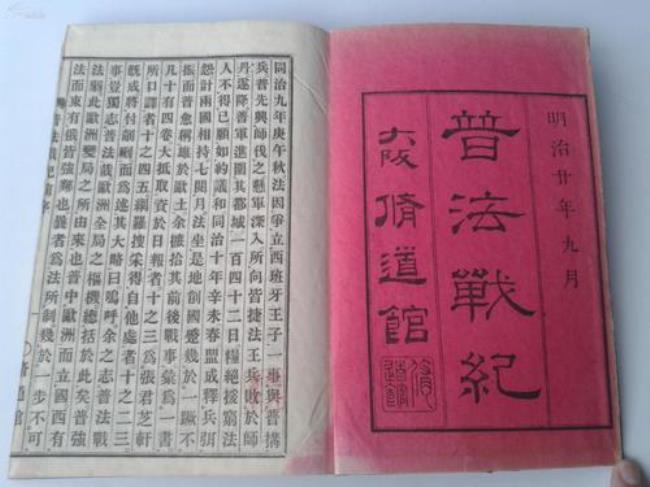 明治廿年九月
普法戰紀
大阪脩道館
脩道館
同治九年庚午秋法因爭立西班牙王子一事與普搆
兵普先興師伐之懸軍深入所向皆捷法王兵敗於師
丹遂降普軍進圍其都城一百四十二日糧絕援窮法
人不得已願如約議和同治十年辛未春盟成釋兵弭
怨計兩國相持七閱月法坐是地創國蹙幾於一蹶不
振而普愈稱雄於歐土余摭拾其前後戰事彙爲一書
凡十有四卷大抵取資於日報者十之三爲張君芝軒
所口譯者十之四五網羅搜采得自他處者十之二三
旣成將付剞劂而爲述其大略曰嗚呼余之志普法戰
事豈獨志普法哉歐洲全局之樞機總括於此矣普強
法弱此歐洲變局之所由來也普中歐洲而立國西有
法而東有俄皆強鄰也曩者爲法所制幾於一步不可
普法戰紀前序
一
脩道館